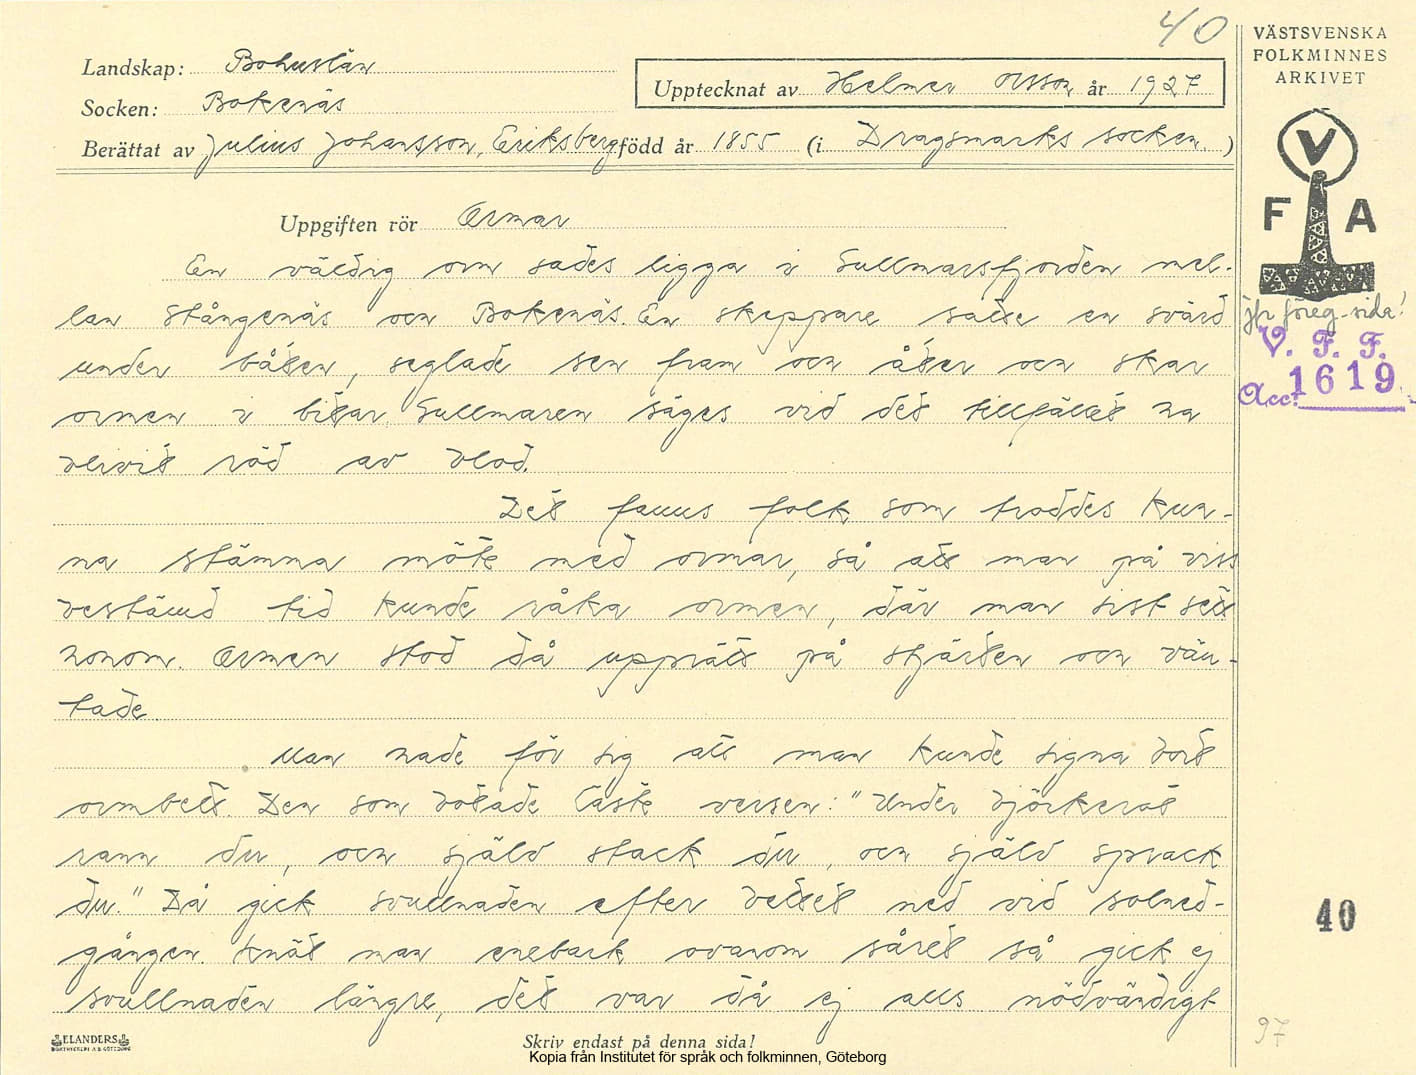 40
VÄSTSVENSKA
FOLKMINNES
ARKIVET
Landskap: Bohuslän
Upptecknat av Helmer Olsson år 1927
Socken: Bokenäs
Berättat av Julius Johansson, Eriksberg född år 1855 (i Dragsmarks socken.)
V
F A
Uppgiften rör Ormar
En väldig orm sades ligga i Gullmarsfjorden mel-
lan Stångenäs och Bokenäs. En skeppare satte en svärd
jfr föreg. sida!
under båten, seglade sen fram och åter och skar
V. F. F.
Acc. 1619
ormen i bitar. Gullmaren säges vid det tillfället ha
blivit röd av blod.
Det fanns folk som troddes kun-
na stämma möte med ormar, så att man på viss
bestämd tid kunde råka ormen, där man sist sett
honom. Ormen stod då upprätt på stjärten och vän-
tade.
Man hade för sig att man kunde signa bort
ormbett. Den som botade läste versen: "Under björkerot
rann du, och själv stack du, och själv sprack
du." Då gick svullnaden efter bettet ned vid solned-
40
gången. Knöt man enebark ovanom såret så gick ej
svullnaden längre, det var då ej alls nödvändigt
97
ELANDERS
BOKTRYCKERI A.B. GÖTEBORG
Skriv endast på denna sida!
Kopia från Institutet för språk och folkminnen, Göteborg